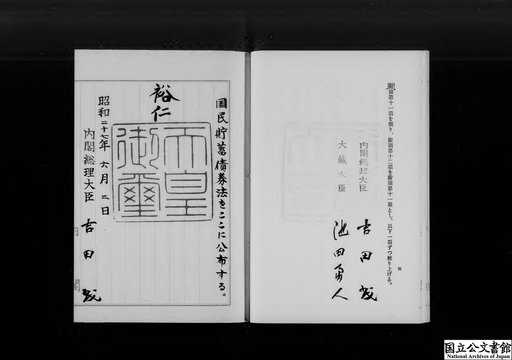 国民貯蓄債券法をここに公布する。
裕仁
天皇
御璽
昭和二十七年六月三日
内閣総理大臣 吉田茂
同条第十一項を削り、同条第十二項を同条第十一項とし、以下一項ずつ繰り上げる。
内閣総理大臣 吉田茂
大蔵大臣 池田勇人
国立公文書館
National Archives of Japan